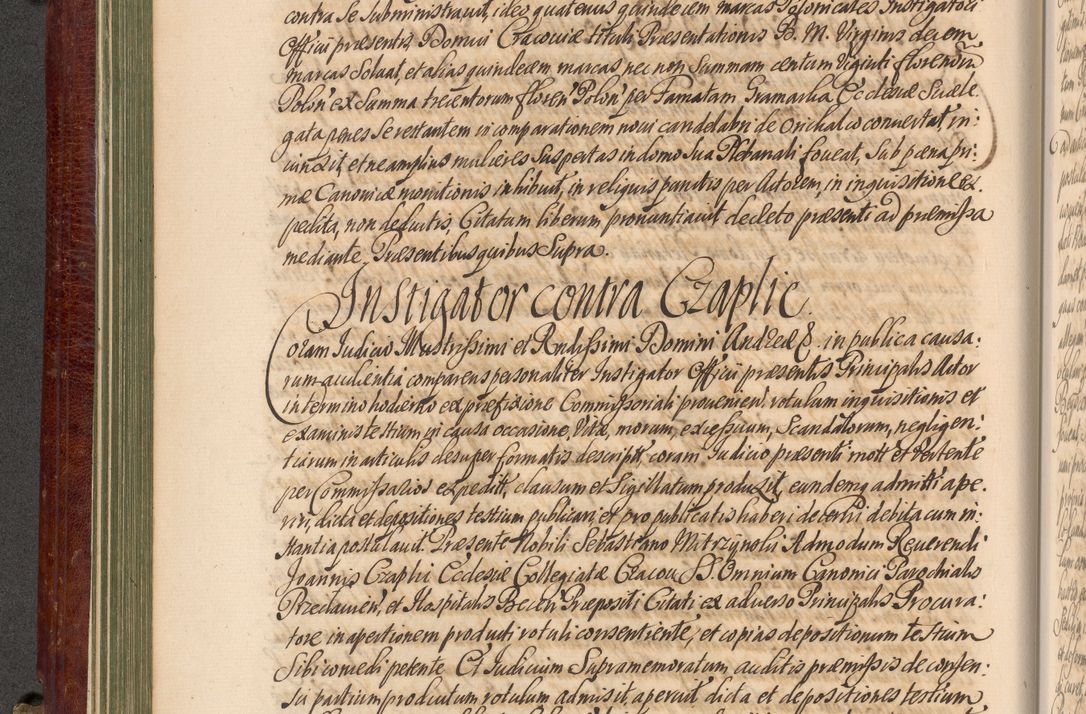 contra se subministravit, ideo quatenus quindecim marcas Polonicales Instigatori
Officii præsentis Domui Cracoviæ tituli Præsentationis B. M. Virginis decem
marcas solvat, et alias quindecim marcas nec non Summam centum viginti florenorũ
Polon' ex Summa trecentorum floren' Polon' per Famatam Gramarka Ecclesiæ suæ le:
gata penes se restantem in comparationem novi candelabri de Orichalco convertat in:
iunxit, et ne amplius mulieres suspectas in domo sua Plebanali foveat, sub pæna pri:
mæ Canonicæ monitionis inhibuit, in reliquis punctis per Actorem, in inquisitione ex:
pedita, non deductis, Citatum liberum pronuntiavit decreto præsenti ad præmissa
mediante. Præsentibus quibus Supra.
Instigator contra Czaplic.
Coram Iudicio Illustrissimi et Rndissimi Domini Andreæ &. in publica causa:
rum audientia comparens personaliter Instigator Officii præsentis Principalis Actor
in termino hodierno ex præfixione Commissoriali provenien', rotulum inquisitionis et
examinis testium in causa occasione, Vitæ, morum, excessuum, Scandalorum, negligen:
tiarum in articulis desuper formatis descript', coram Iudicio præsenti mott' et vertente
per Commissarios expedit', clausum et Sigillatum produxit, eundemq admitti ape:
riri, dicta et depositiones testium publicari et pro publicatis haberi decerni debita cum in:
stantia postulavit. Præsente Nobili Sebastiano Mitrzynski Admodum Reverendi
Joannis Czaplic Ecclesiæ Collegiatæ Cracov' SS. Omnium Canonici Parochialis
Przeclawien', et Hospitalis Præpositi Citati ex adverso Principalis Procura:
tore in apertionem producti rotuli consentiente, et copias depositionum testium
sibi concedi petente. Et Iudicium Supramemoratum, auditis præmissis de consen:
su partium productum rotulum admisit, aperuit, dicta et depositiones testium